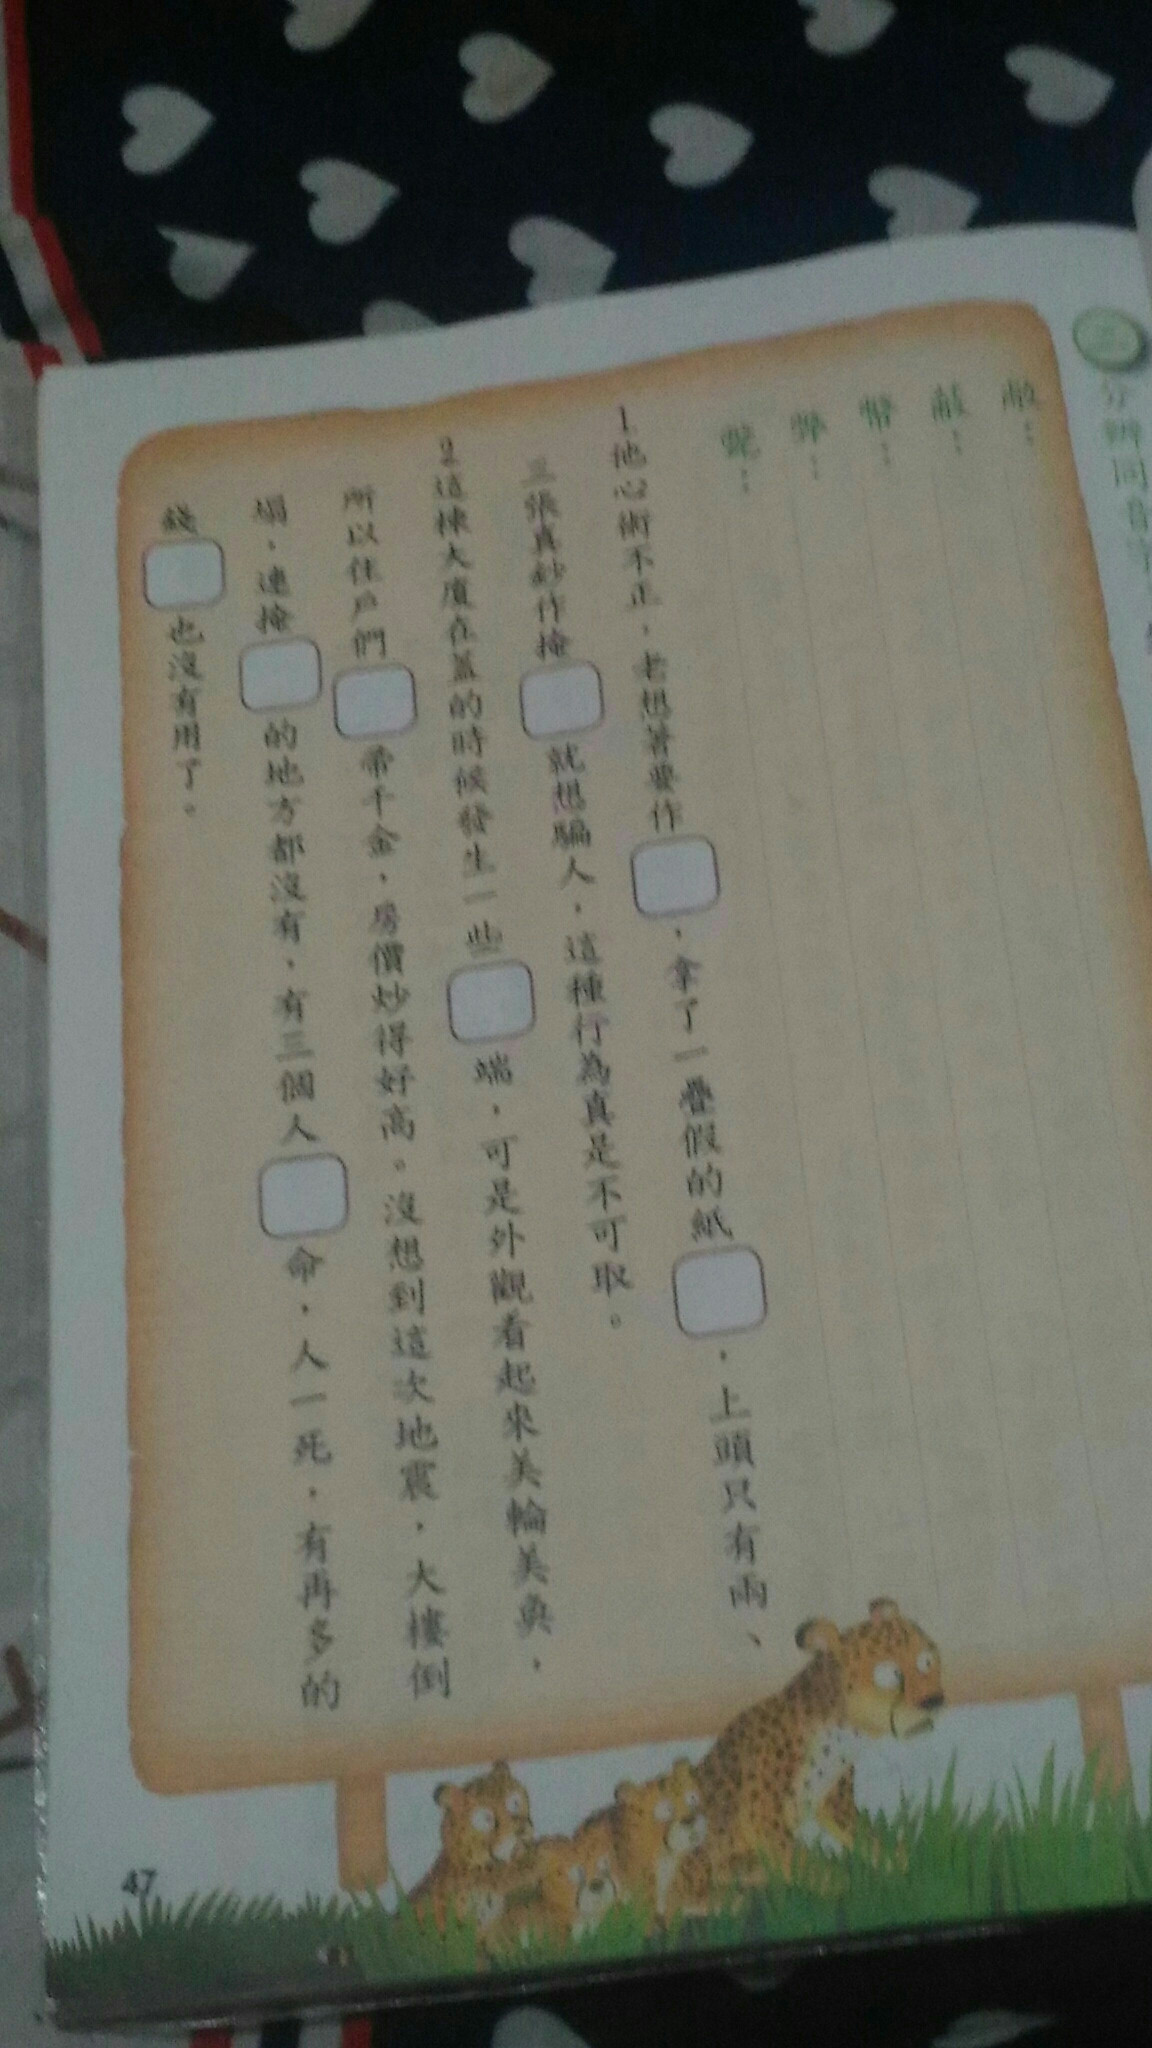 分辨同音字
敝：
蔽：
幣：
弊：
斃：
1.他心術不正，老想著要作，拿了一疊假的紙，上頭只有兩、
三張真鈔作掩就想騙人，這種行為真是不可取。
2.這棟大廈在蓋的時候發生一些端，可是外觀看起來美輪美奐，
所以住戶們帚千金，房價炒得好高。沒想到這次地震，大樓倒
塌，連掩的地方都沒有，有三個人命，人一死，有再多的
錢也沒有用了。
47